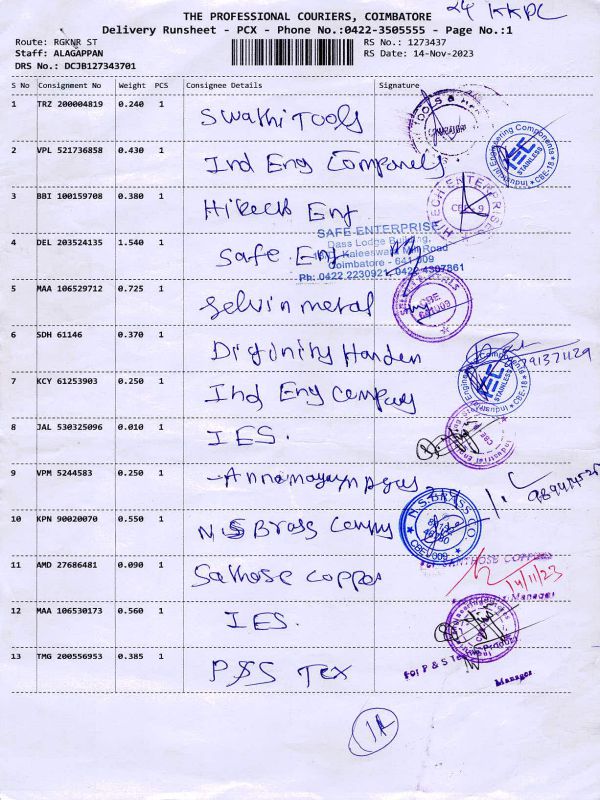 24 KKPC
THE PROFESSIONAL COURIERS, COIMBATORE
Delivery Runsheet - PCX - Phone No.:0422-3505555 - Page No.:1
Route: RGKNR ST RS No.: 1273437
Staff: ALAGAPPAN RS Date: 14-Nov-2023
DRS No.: DCJB127343701
S No Consignment No Weight PCS Consignee Details Signature
1 TRZ 200004819 0.240 1 Swathi Tools
2 VPL 521736858 0.430 1 Ind Eng
Industrial Engineering Components IEC STAINLESS CBE-18
3 BBI 100159708 0.380 1 Hitech Enf
HITECH ENTERPRISES
4 DEL 203524135 1.540 1 Safe Enf
SAFE ENTERPRISE
Dass Lodge Building,
Kaleeswara Mill Road
Coimbatore - 641 009
Ph: 0422 2230921, 0422 4397861
5 MAA 106529712 0.725 1 Selvin metal
CBE
6 SDH 61146 0.370 1 Diginity Handen
7 KCY 61253903 0.250 1 Ind Eng Company
Industrial Engineering Components IEC STAINLESS CBE-18
8 JAL 530325096 0.010 1 IES.
9 VPM 5244583 0.250 1
10 KPN 90020070 0.550 1 N.S Brass
N.S.BRASS CO. CBE 009
11 AMD 27686481 0.090 1 Sathose Coppes
14/11/23
Manager
12 MAA 106530173 0.560 1 IES.
13 TMG 200556953 0.385 1 P&S Tex
For P & S Tex
Manager